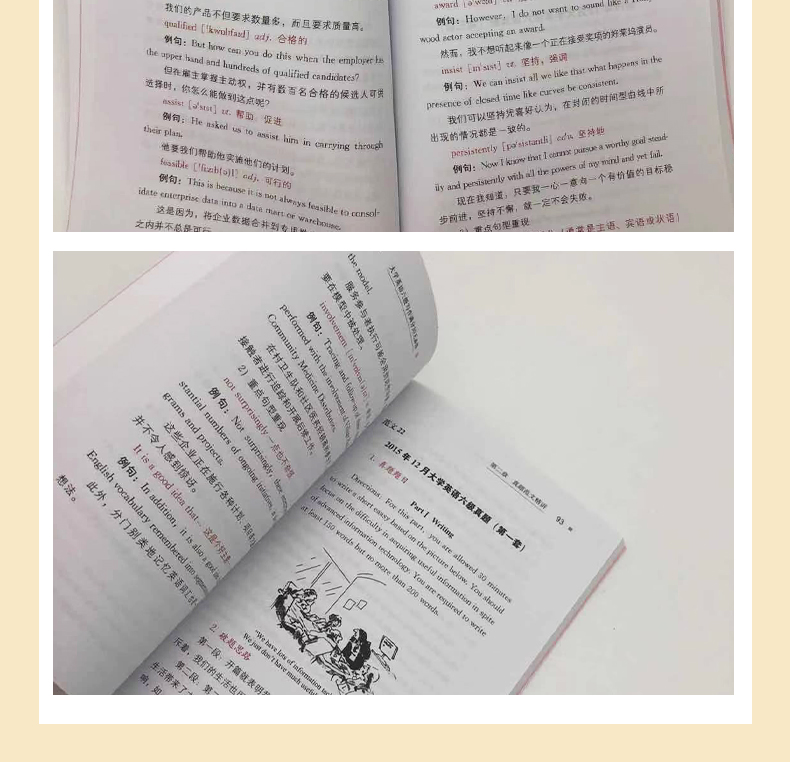 我们的产品不但要求数量多，而且要求质量高。
qualified ['kwɒlɪfaɪd] adj. 合格的
例句：But how can you do this when the employer has
the upper hand and hundreds of qualified candidates?
但在雇主掌握主动权，并有数百名合格的候选人可供
选择时，你怎么能做到这点呢？
assist [ə'sɪst] vt. 帮助 促进
例句：He asked us to assist him in carrying through
their plan.
他要我们帮助他实施他们的计划。
feasible ['fiːzɪb(ə)l] adj. 可行的
例句：This is because it is not always feasible to consol-
idate enterprise data into a data mart or warehouse.
这是因为，将企业数据合并到专用
之内并不总是可行
award
例句：However, I do not want to sound like a
wood actor accepting an award.
然而，我不想听起来像一个正在接受奖项的好莱坞演员。
insist [ɪn'sɪst] vt. 坚持，强调
例句：We can insist all we like that what happens in the
presence of closed time like curves be consistent.
我们可以坚持凭喜好认为，在封闭的时间型曲线中所
出现的情况都是一致的。
persistently [pə'sɪstəntli] adv. 坚持地
例句：Now I know that I cannot pursue a worthy goal stead-
ily and persistently with all the powers of my mind and yet fail.
现在我知道，只要我一心一意向一个有价值的目标稳
步前进，坚持不懈，就一定不会失败。
重点句型重现
the model.
服务参与者执行
要在模型中被处理。
involvement
例句：Tracing and follow-up
performed with the involvement of
Community Medicine Distributors.
在村卫生队和社区医药
接触者进行追踪和开展后续工作。
2）重点句型重现
not surprisingly 一点也不奇怪
例句：Not surprisingly, these
stantial numbers of ongoing
grams and projects.
这些企业正在施行各种计划，
并不令人感到惊讶。
It is a good idea that...
例句：In addition, it is also a good
English vocabulary remembered into
此外，分门别类地记忆英语词汇
想法。
第二章 真题范文精讲 93
范文 22
2015 年 12 月大学英语六级真题（第一套）
1. 真题题目
Part I Writing
Directions: For this part, you are allowed 30 minutes
to write a short essay based on the picture below. You should
focus on the difficulty in acquiring useful information in spite
of advanced information technology. You are required to write
at least 150 words but no more than 200 words.
"We have lots of information
We just don't have much useful
2. 破题思路
第一段：开篇就表明
斥着，我们的生活也
第二段：第
生活带来了
响，如